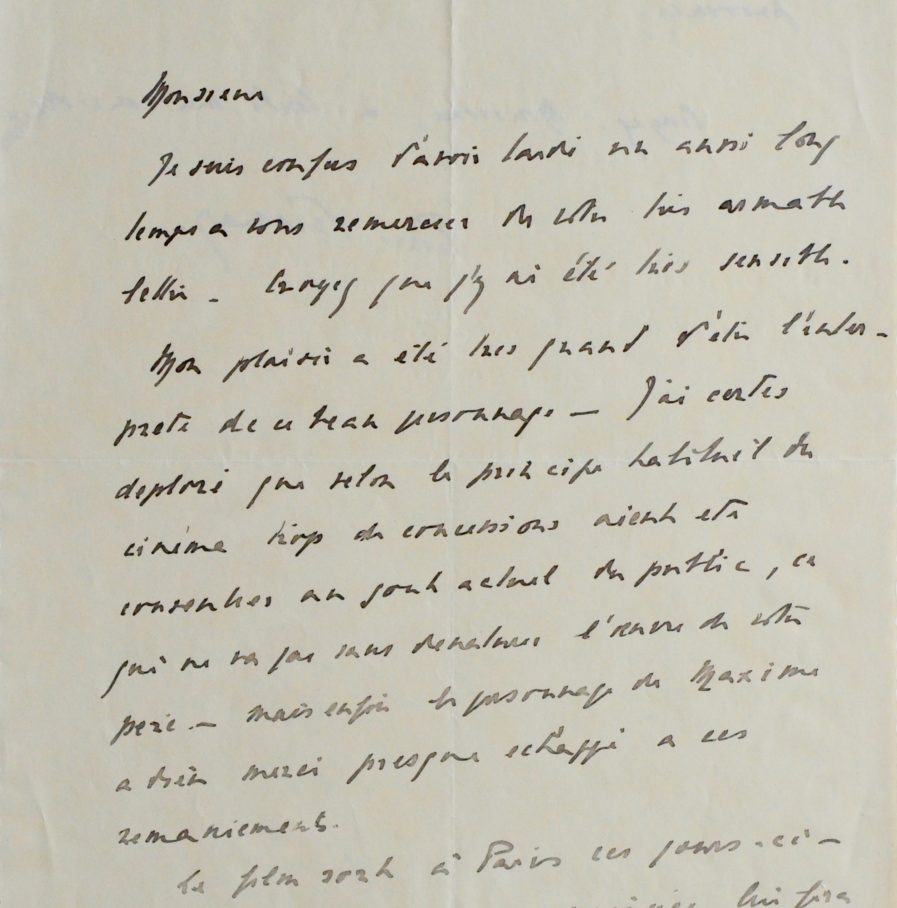 Monsieur
Je suis confus d'avoir tardé un aussi long
temps a vous remercier de votre très aimable
lettre - Croyez que j'y ai été très sensible.
Mon plaisir a été très grand d'être l'inter-
prete de ce beau personnage - J'ai certes
deploré que selon le principe habituel du
cinéma trop de concessions aient eté
consenties au gout actuel du public, ce
qui ne va pas sans denaturer l'œuvre de votre
père - mais enfin le personnage de Maxime
a dieu merci presque echappé a ces
remaniements.
Le film sort à Paris ces jours-ci -
lui fera